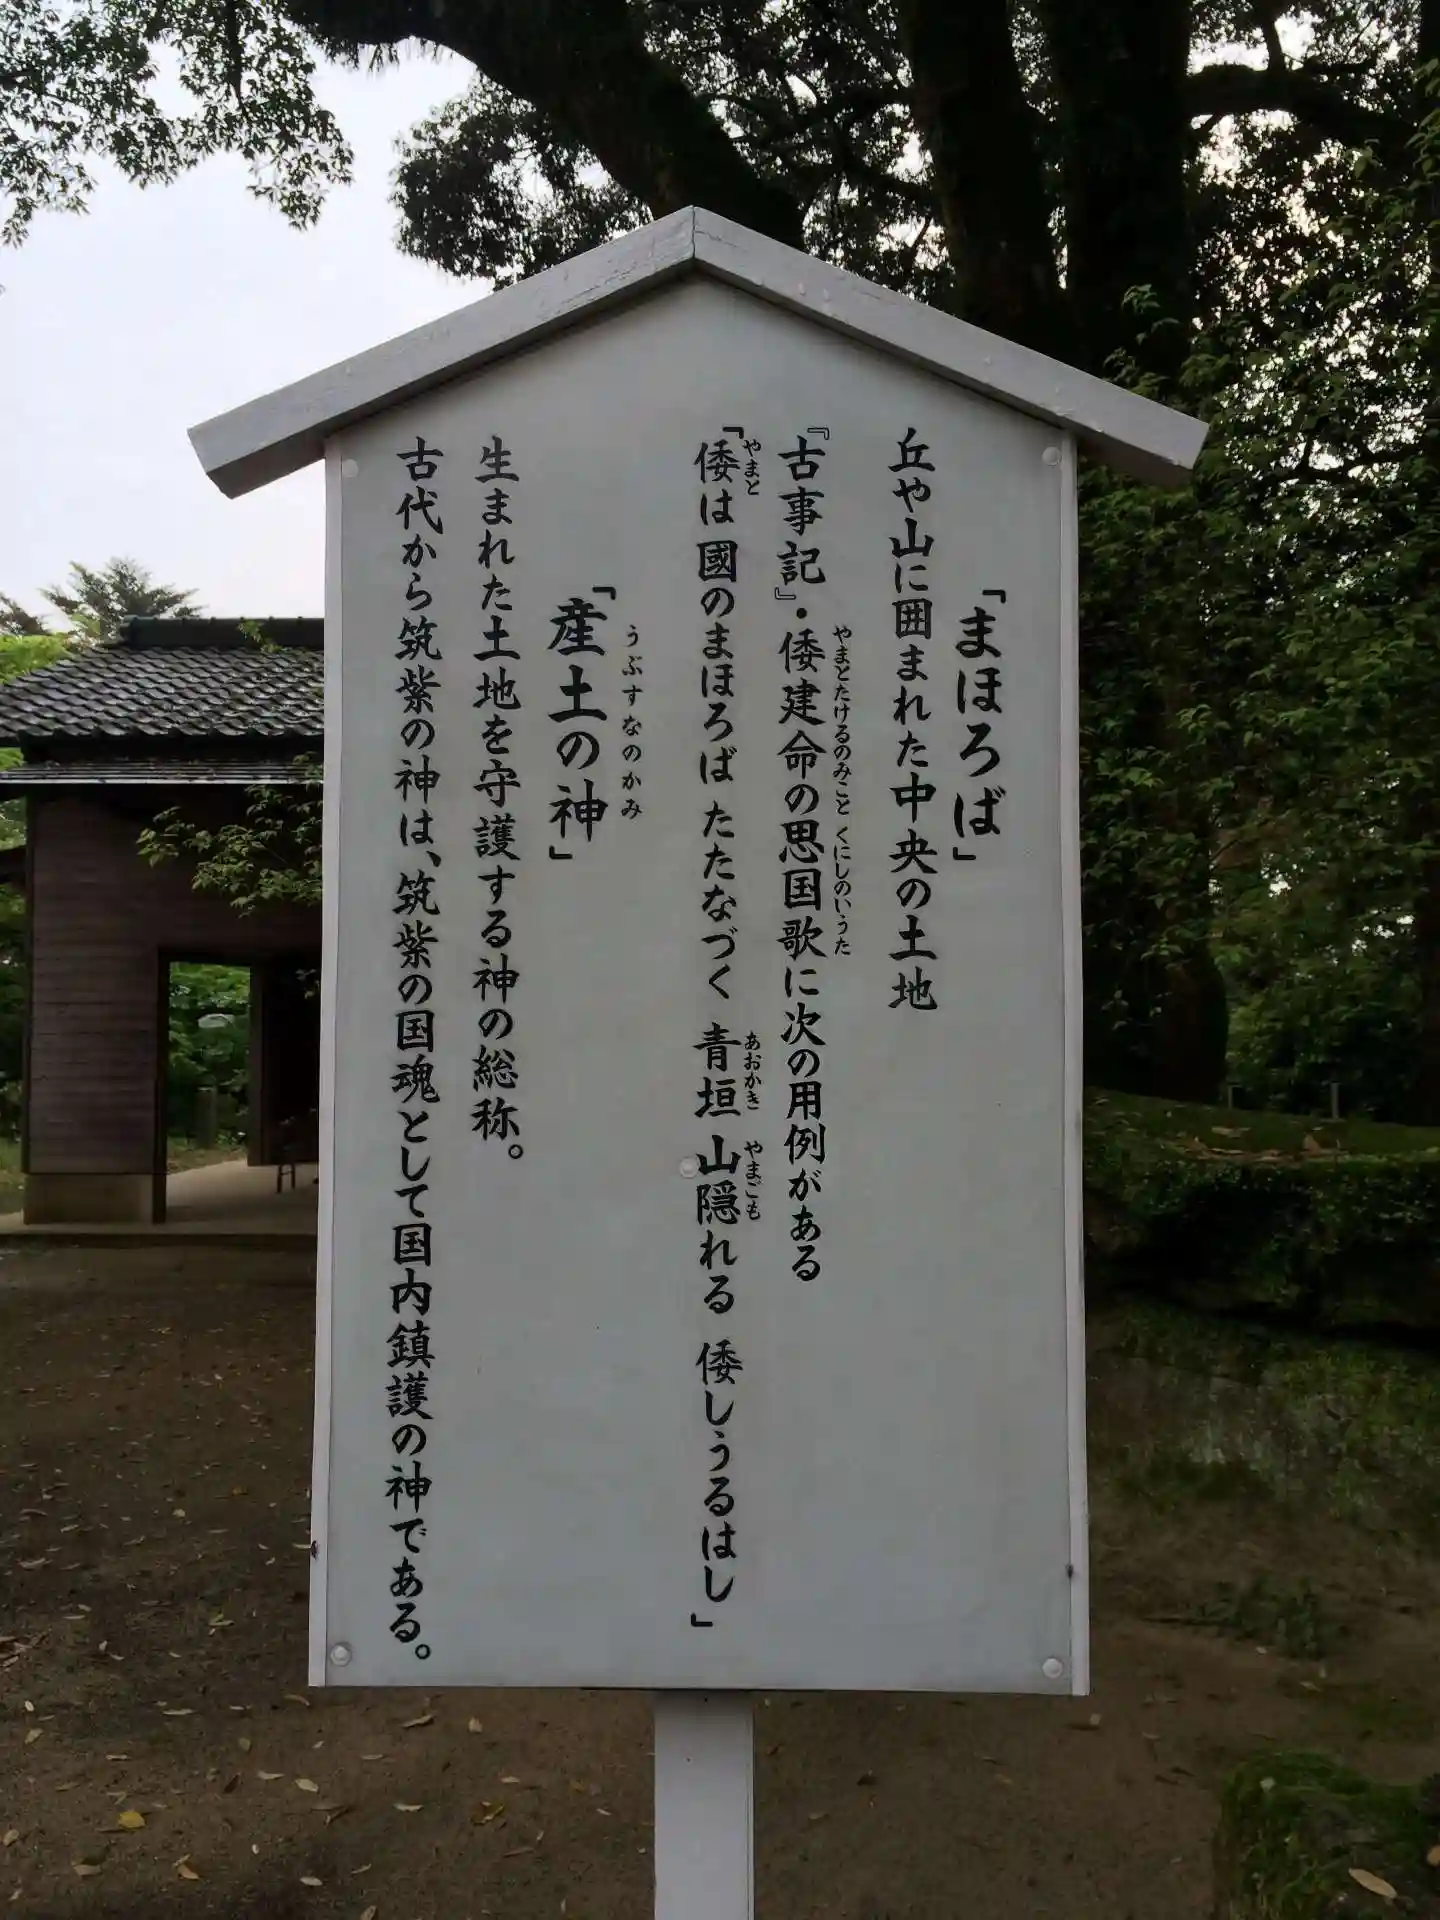 「まほろば」
丘や山に囲まれた中央の土地
『古事記』・倭建命の思国歌に次の用例がある
やまとたけるのみこと くにしのいうた
「倭は 國のまほろば たたなづく 青垣 山隠れる 倭しうるはし」
やまと あおかき やまごも
「産土の神」
うぶすなのかみ
生まれた土地を守護する神の総称。
古代から筑紫の神は、筑紫の国魂として国内鎮護の神である。